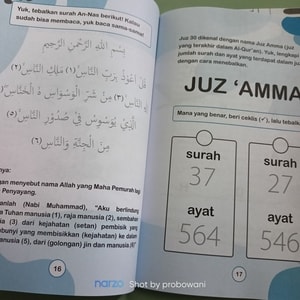 Yuk, tebalkan surah An-Nas berikut! Kalau
sudah bisa membaca, yuk baca sama-sama!
بِسْمِ اللّٰهِ الرَّحْمٰنِ الرَّحِيْمِ
قُلْ اَعُوْذُ بِرَبِّ النَّاسِ(١) مَلِكِ النَّاسِ(٢)
النَّاسِ(٣) مِنْ شَرِّ الْوَسْوَاسِ ەۙ الْخَنَّاسِ
الَّذِيْ يُوَسْوِسُ فِيْ صُدُوْرِ النَّاسِ(٥)
مِنَ الْجِنَّةِ وَالنَّاسِ(٦)
nya:
gan menyebut nama Allah yang Maha Pemurah lagi
Penyayang.
anlah (Nabi Muhammad), "Aku berlindung
a Tuhan manusia (1), raja manusia (2), sembahan
sia (3) dari kejahatan (setan) pembisik yang
bunyi yang membisikkan (kejahatan) ke dalam
anusia (5), dari (golongan) jin dan manusia."
16
Juz 30 dikenal dengan nama Juz Amma (juz
yang terakhir dalam Al-Qur'an). Yuk, lengkapi
jumlah surah dan ayat yang terdapat dalam
dengan cara menebalkan.
JUZ 'AMMA
Mana yang benar, beri ceklis (✓), lalu tebalkan
surah
37
ayat
564
surah
27
ayat
546
17
narzo Shot by probowani